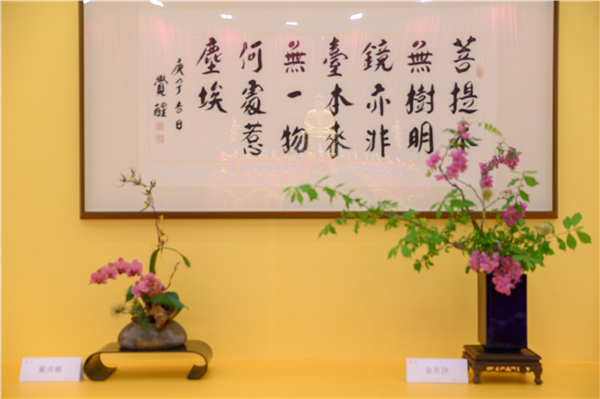 菩提本
無樹明
鏡亦非
臺本來
無一物
何處惹
塵埃
庚子吉日
覺醒